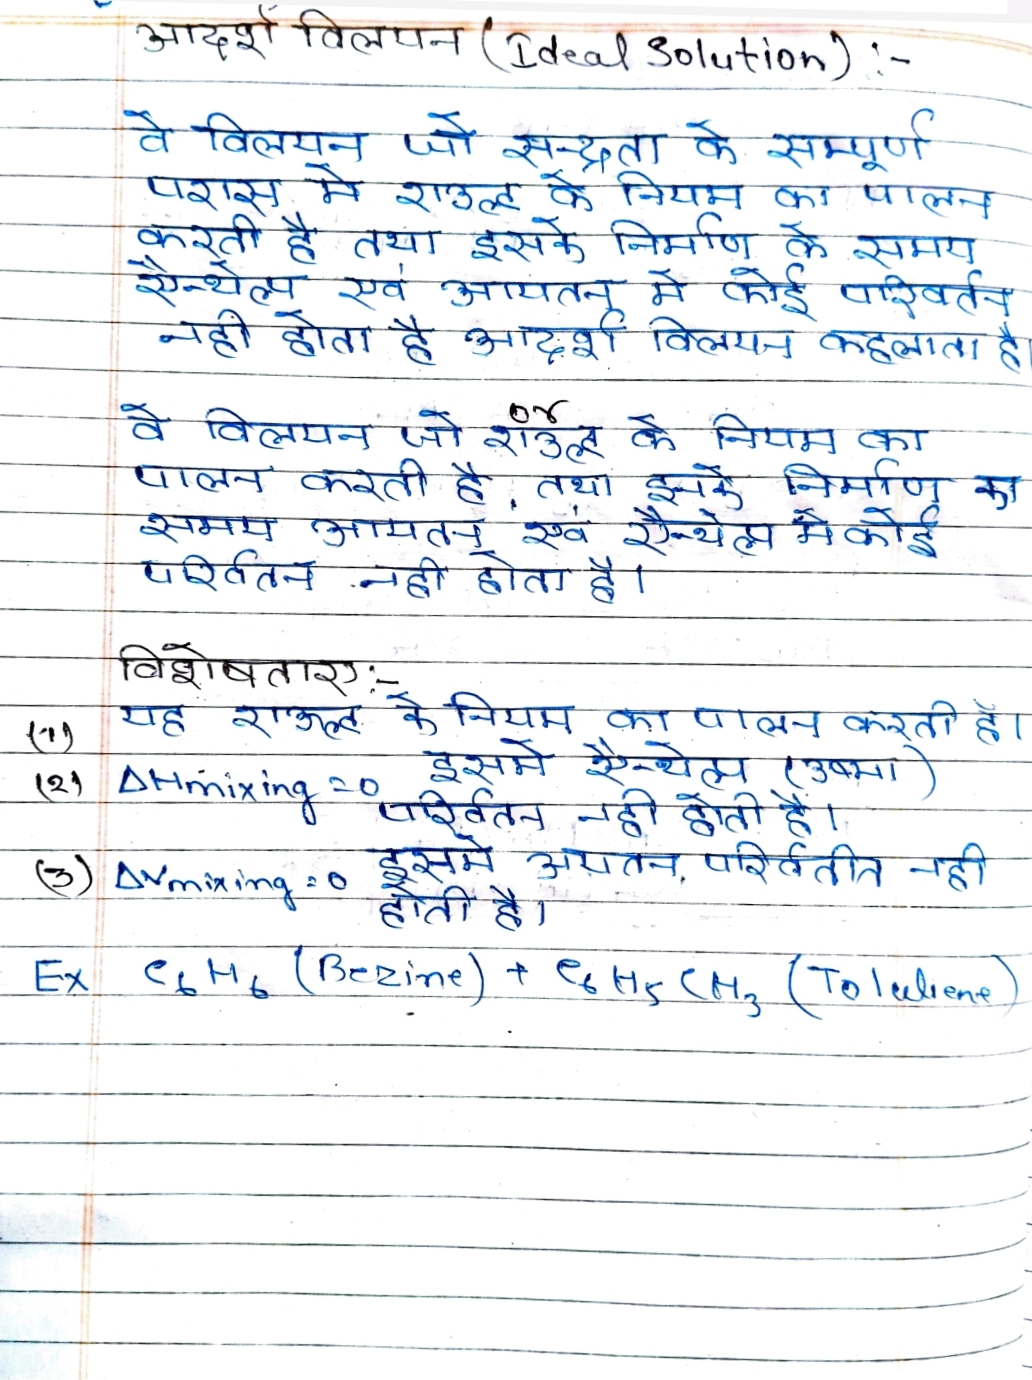 आदर्श विलयन (Ideal Solution) :-
वे विलयन जो सन्द्रता के सम्पूर्ण
परास मे राउल्ट के नियम का पालन
करती है तथा इसके निर्माण के समय
ऐन्थेल्प एवं आयतन में कोई परिवर्तन
नही होता है आदर्श विलयन कहलाता है।
or
वे विलयन जो राउल्ट के नियम का
पालन करती है, तथा इनके निर्माण का
समय आयतन एवं ऐन्थेल्प मे कोई
परिर्वतन नही होता है।
विशेषताए :-
(1) यह राऊल्ट के नियम का पालन करती है।
(2) ΔHmixing = 0 इसमे ऐन्थेल्प (उष्मा)
परिर्वतन नही होती है।
(3) ΔVmixing = 0 इसमे अयतन परिर्वतीत नही
होती है।
Ex C6H6 (Bezine) + C6H5CH3 (Toluliene)